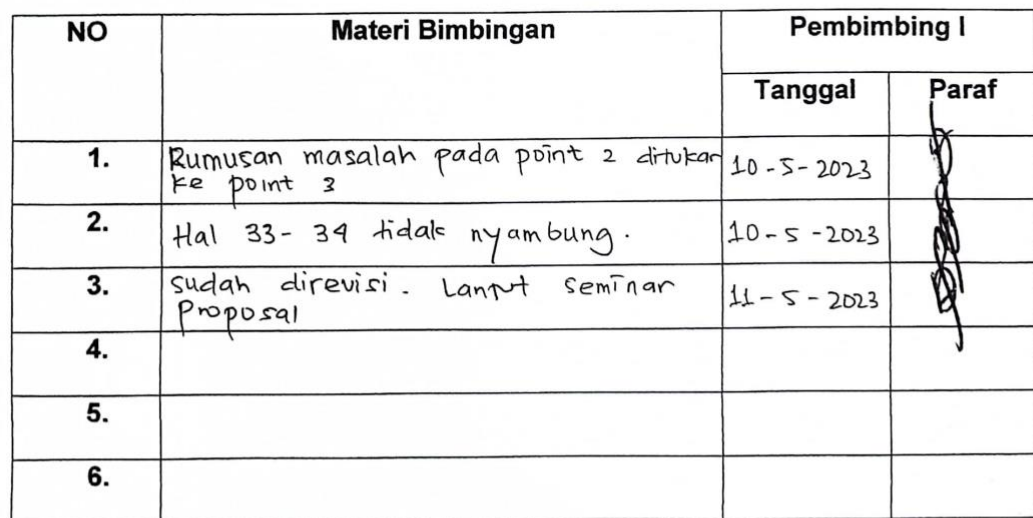 NO Materi Bimbingan Pembimbing I
Tanggal Paraf
1. Rumusan masalah pada point 2 ditukar 10-5-2023
ke point 3
2. Hal 33-34 tidak nyambung. 10-5-2023
3. sudah direvisi. Lanjut seminar 11-5-2023
Proposal
4.
5.
6.